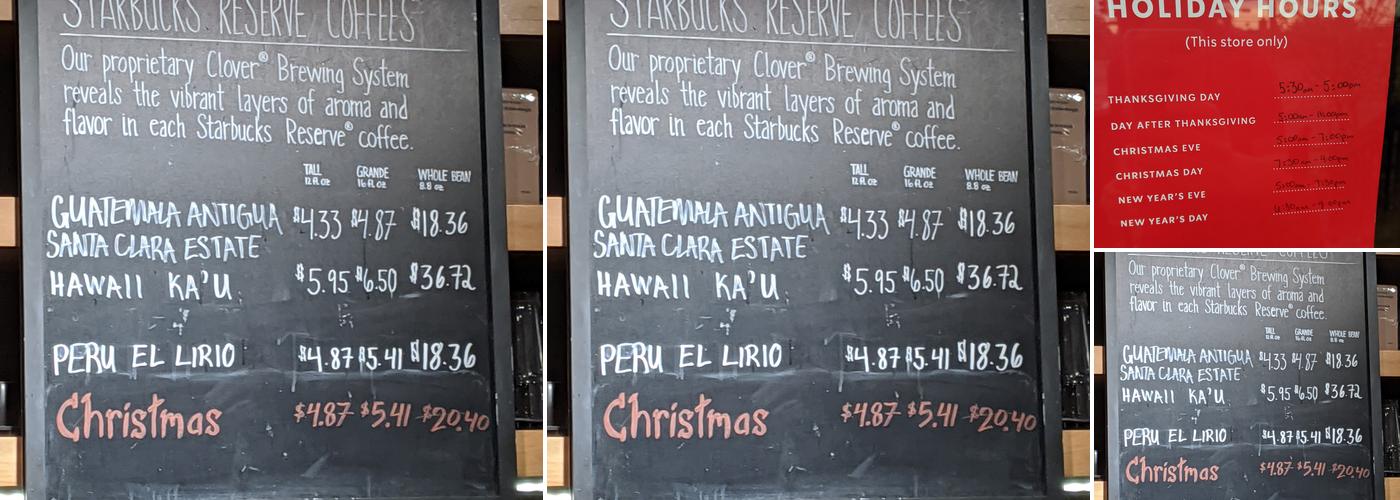 STARBUCKS RESERVE COFFEES
Our proprietary Clover® Brewing System
reveals the vibrant layers of aroma and
flavor in each Starbucks Reserve® coffee.
TALL 12 fl oz GRANDE 16 fl oz WHOLE BEAN 8.8 oz
GUATEMALA ANTIGUA $4.33 $4.87 $18.36
SANTA CLARA ESTATE
HAWAII KA'U $5.95 $6.50 $36.72
PERU EL LIRIO $4.87 $5.41 $18.36
Christmas $4.87 $5.41 $20.40
STARBUCKS RESERVE COFFEES
Our proprietary Clover® Brewing System
reveals the vibrant layers of aroma and
flavor in each Starbucks Reserve® coffee.
TALL 12 fl oz GRANDE 16 fl oz WHOLE BEAN 8.8 oz
GUATEMALA ANTIGUA $4.33 $4.87 $18.36
SANTA CLARA ESTATE
HAWAII KA'U $5.95 $6.50 $36.72
PERU EL LIRIO $4.87 $5.41 $18.36
Christmas $4.87 $5.41 $20.40
HOLIDAY HOURS
(This store only)
THANKSGIVING DAY 5:30am - 5:00pm
DAY AFTER THANKSGIVING 5:00am
CHRISTMAS EVE 5:00am - 7:00pm
CHRISTMAS DAY 7:30am - 4:00pm
NEW YEAR'S EVE 5:00am
NEW YEAR'S DAY
RESERVE COFFEES
Our proprietary Clover® Brewing System
reveals the vibrant layers of aroma and
flavor in each Starbucks Reserve® coffee.
TALL 12 fl oz GRANDE 16 fl oz WHOLE BEAN 8.8 oz
GUATEMALA ANTIGUA $4.33 $4.87 $18.36
SANTA CLARA ESTATE
HAWAII KA'U $5.95 $6.50 $36.72
PERU EL LIRIO $4.87 $5.41 $18.36
Christmas $4.87 $5.41 $20.40